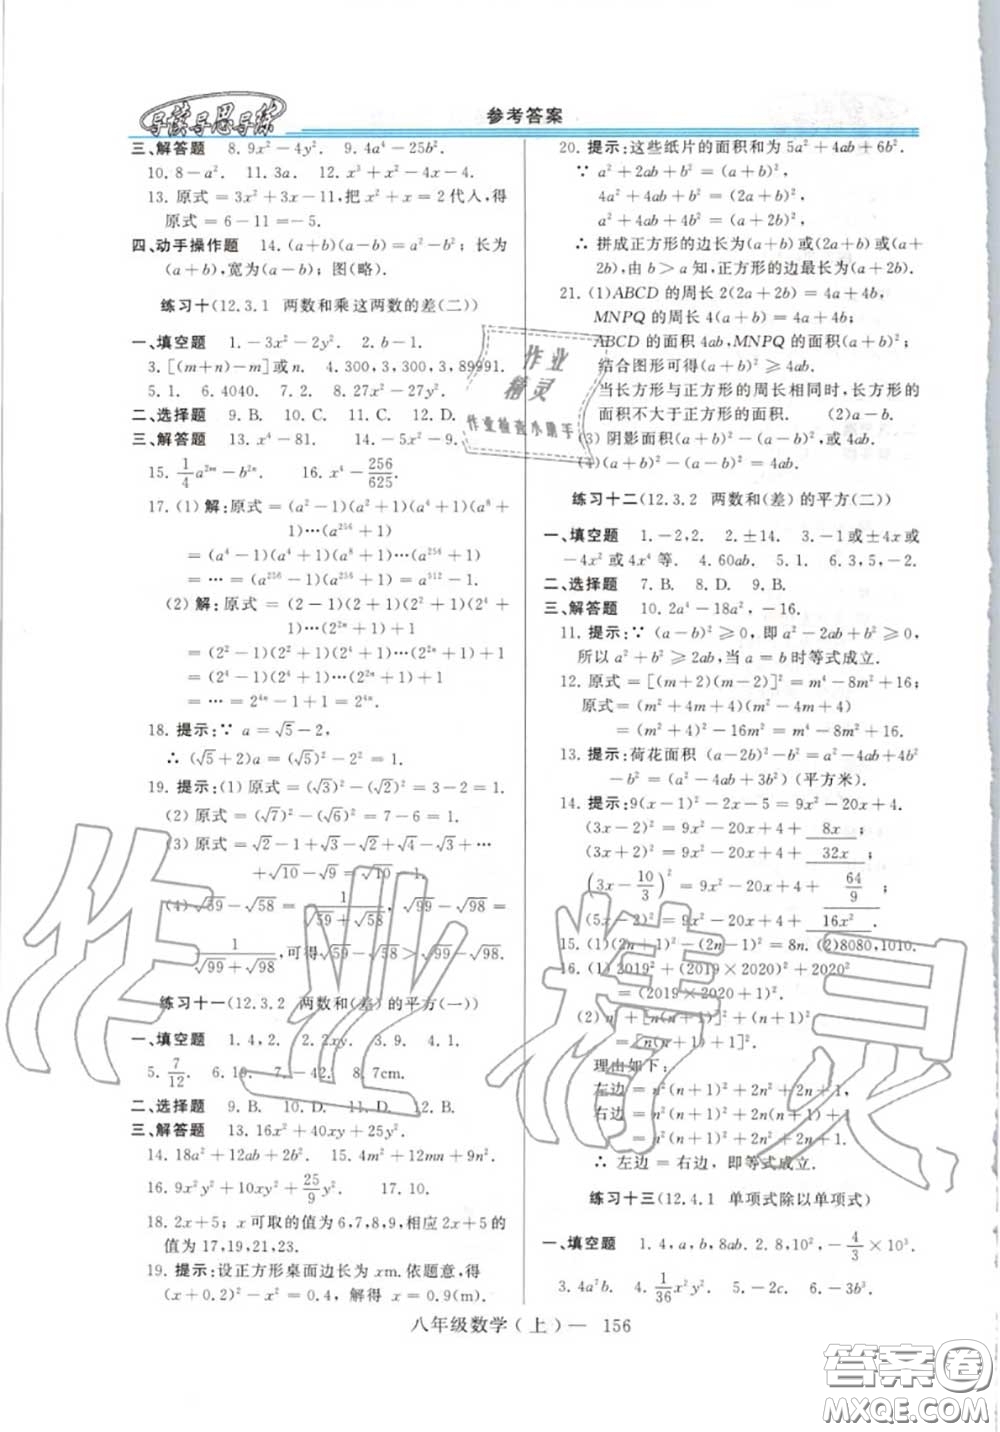 导读导思导练
参考答案
三、解答题 8. 9x²－4y². 9. 4a⁴－25b².
10. 8－a². 11. 3a. 12. x³＋x²－4x－4.
13. 原式＝3x²＋3x－11,把 x²＋x＝2代入,得
原式＝6－11＝－5.
四、动手操作题 14. (a＋b)(a－b)＝a²－b²；长为
(a＋b),宽为(a－b)；图(略).
练习十(12.3.1 两数和乘这两数的差(二))
一、填空题 1. －3x²－2y². 2. b－1.
3. [(m＋n)－m]或n. 4. 300,3,300,3,89991.
5. 1. 6. 4040. 7. 1. 8. 2.
二、选择题 9. B. 10. C. 11. C. 12. D.
三、解答题 13. x⁴－81. 14. －5x²－9.
15. 1/4 a²ᵐ－b²ⁿ. 16. x⁴－256/625.
17. (1) 解:原式＝(a²－1)(a²＋1)(a⁴＋1)(a⁸＋
1)⋯(a²⁵⁶＋1)
＝(a⁴－1)(a⁴＋1)(a⁸＋1)⋯(a²⁵⁶＋1)
＝⋯＝(a²⁵⁶－1)(a²⁵⁶＋1)＝a⁵¹²－1.
(2) 解:原式＝(2－1)(2＋1)(2²＋1)(2⁴＋
1)⋯(2²ⁿ＋1)＋1
＝(2²－1)(2²＋1)(2⁴＋1)⋯(2²ⁿ＋1)＋1
＝(2⁴－1)(2⁴＋1)⋯(2²ⁿ＋1)＋1
＝⋯＝2⁴ⁿ－1＋1＝2⁴ⁿ.
18. 提示:∵ a＝√5－2,
∴ (√5＋2)a＝(√5)²－2²＝1.
19. 提示:(1) 原式＝(√3)²－(√2)²＝3－2＝1.
(2) 原式＝(√7)²－(√6)²＝7－6＝1.
(3) 原式＝√2－1＋√3－√2＋√4－√3＋⋯
＋√10－√9＝√10－1.
(4) √59－√58＝1/(√59＋√58),√99－√98＝
1/(√99＋√98),可得√59－√58＞√99－√98.
练习十一(12.3.2 两数和(差)的平方(一))
一、填空题 1. 4,2. 2. 2xy. 3. 9. 4. 1.
5. 7/12. 6. 19. 7. －42. 8. 7cm.
二、选择题 9. B. 10. D. 11. D. 12. B.
三、解答题 13. 16x²＋40xy＋25y².
14. 18a²＋12ab＋2b². 15. 4m²＋9n².
16. 9x²y²＋10xy²＋25/9 y². 17. 10.
18. 2x＋5；x可取的值为6,7,8,9,相应2x＋5的
值为17,19,21,23.
19. 提示:设正方形桌面边长为xm.依题意,得
(x＋0.2)²－x²＝0.4, 解得 x＝0.9(m).
20. 提示:这些纸片的面积和为5a²＋4ab＋6b².
∵ a²＋2ab＋b²＝(a＋b)²,
4a²＋4ab＋b²＝(2a＋b)²,
a²＋4ab＋4b²＝(a＋2b)²,
∴ 拼成正方形的边长为(a＋b)或(2a＋b)或(a＋
2b),由b＞a知,正方形的边最长为(a＋2b).
21. (1)ABCD的周长2(2a＋2b)＝4a＋4b,
MNPQ的周长4(a＋b)＝4a＋4b；
ABCD的面积4ab,MNPQ的面积(a＋b)²,
结合图形可得(a＋b)²≥4ab.
当长方形与正方形的周长相同时,长方形的
面积不大于正方形的面积. (2)a－b.
(3) 阴影面积(a－b)²或(a＋b)²－4ab.
(4)(a－b)²＝(a＋b)²－4ab.
练习十二(12.3.2 两数和(差)的平方(二))
一、填空题 1. －2,2. 2. ±14. 3. －1或±4x或
－4x²或4x⁴等. 4. 60ab. 5. －7x. 6. 3,5,－2.
二、选择题 7. B. 8. D. 9. B.
三、解答题 10. 2a⁴－18a²,－16.
11. 提示:∵ (a－b)²≥0,即a²－2ab＋b²≥0,
所以a²＋b²≥2ab,当a＝b时等式成立.
12. 原式＝[(m＋2)(m－2)]²＝m⁴－8m²＋16；
原式＝(m²＋4m＋4)(m²－4m＋4)
＝(m²＋4)²－16m²＝m⁴－8m²＋16.
13. 提示:荷花面积 (a－2b)²－b²＝a²－4ab＋4b²
－b²＝(a²－4ab＋3b²)(平方米).
14. 提示:9(x－1)²－2x－5＝9x²－20x＋4.
(3x－2)²＝9x²－20x＋4＋8x；
(3x＋2)²＝9x²－20x＋4＋32x；
(3x－10/3)²＝9x²－20x＋4＋64/9；
(5x－2)²＝9x²－20x＋4＋16x².
15. (1)(2n＋1)²－(2n－1)²＝8n. (2)8080,1010.
16. (1) 2019²＋(2019×2020)²＋2020²
＝(2019×2020＋1)².
(2) n²＋[n(n＋1)]²＋(n＋1)²
＝[n(n＋1)＋1]².
理由如下:
左边＝n²(n＋1)²＋2n²＋2n＋1,
右边＝n²(n＋1)²＋2n(n＋1)＋1
＝n²(n＋1)²＋2n²＋2n＋1.
∴ 左边＝右边,即等式成立.
练习十三(12.4.1 单项式除以单项式)
一、填空题 1. 4,a,b,8ab. 2. 8,10²,－4/3×10³.
3. 4a²b. 4. 1/36 x²y². 5. －2c. 6. －3b³.
八年级数学(上)— 156
作业精灵
作业精灵
作业检查小助手
答案圈
MXQE.COM